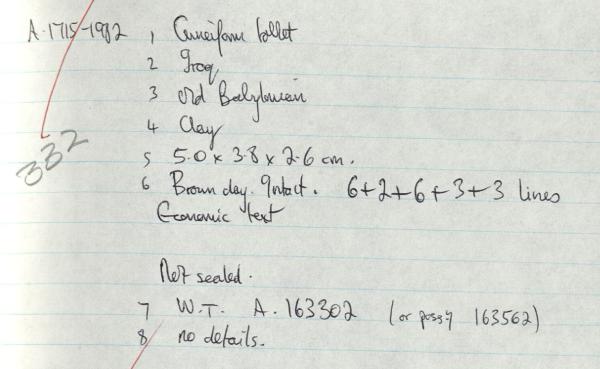 A.1715-1982 1 Cuneiform tablet
2 Iraq
3 Old Babylonian
4 Clay
332
5 5.0 x 3.8 x 2.6 cm.
6 Brown clay. Intact. 6+2+6+3+3 lines
Economic text
Not sealed.
7 W.T. A.163302 (or possy 163562)
8 no details.